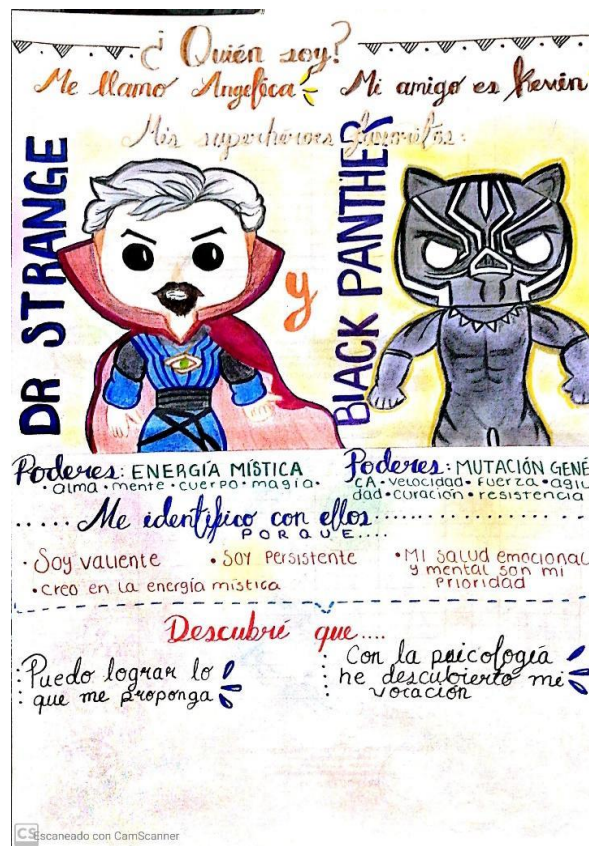 ¿Quién soy?
Me llamo Angelica
Mi amigo es Kevin
Mis superhéroes favoritos:
DR STRANGE
y
BLACK PANTHER
Poderes: ENERGÍA MÍSTICA
• alma • mente • cuerpo • magia.
Poderes: MUTACIÓN GENÉ
CA • velocidad • fuerza • agil
dad • curación • resistencia
...... Me identifico con ellos
PORQUE....
• Soy valiente
• SOY Persistente
• MI salud emocional
y mental son mi
Prioridad
• creo en la energía mística
Descubrí que....
Puedo lograr lo
que me proponga
Con la psicología
he descubierto mi
vocación
CS Escaneado con CamScanner